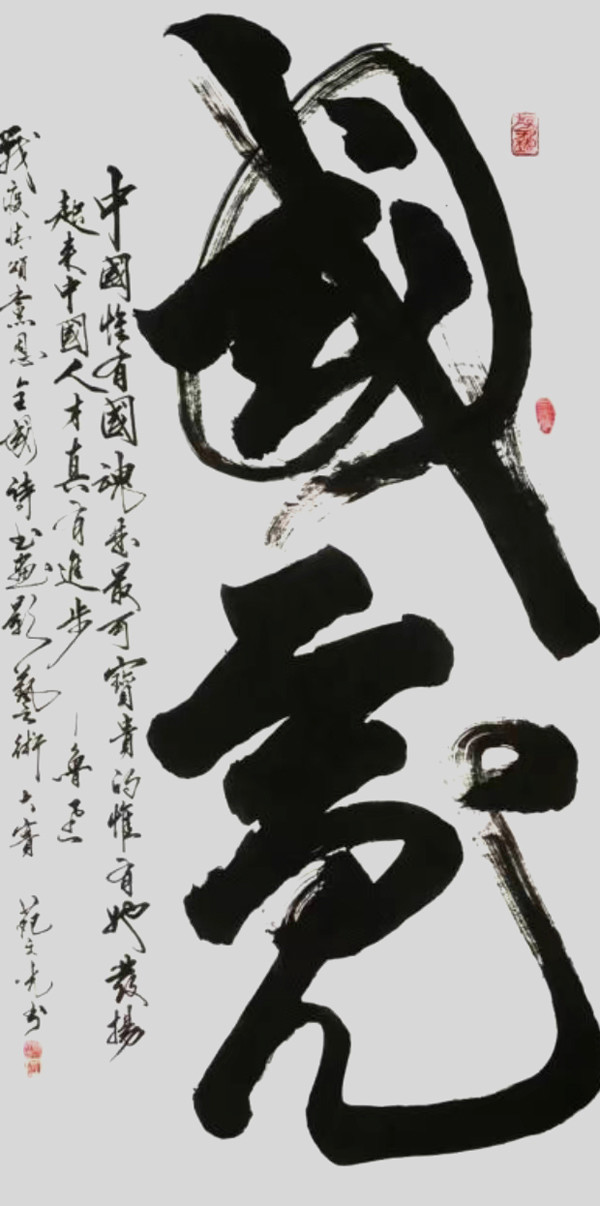 國魂
中國惟有國魂是最可寶貴的惟有她發揚
起來中國人才真有進步 —魯迅
戰疫情頌黨恩全國詩书畫影藝術大賽 範文光书